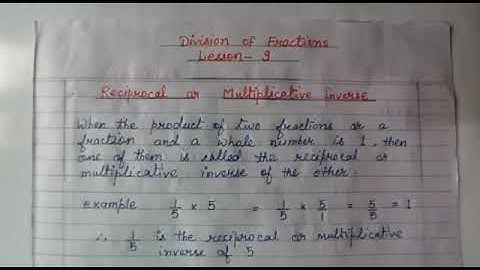 Division of Fractions
Lesson - 9
Reciprocal or Multiplicative Inverse
When the product of two fractions or a
fraction and a whole number is 1, then
one of them is called the reciprocal or
multiplicative inverse of the other.
example 1/5 × 5 = 1/5 × 5/1 = 5/5 = 1
∴ 1/5 is the reciprocal or multiplicative
inverse of 5